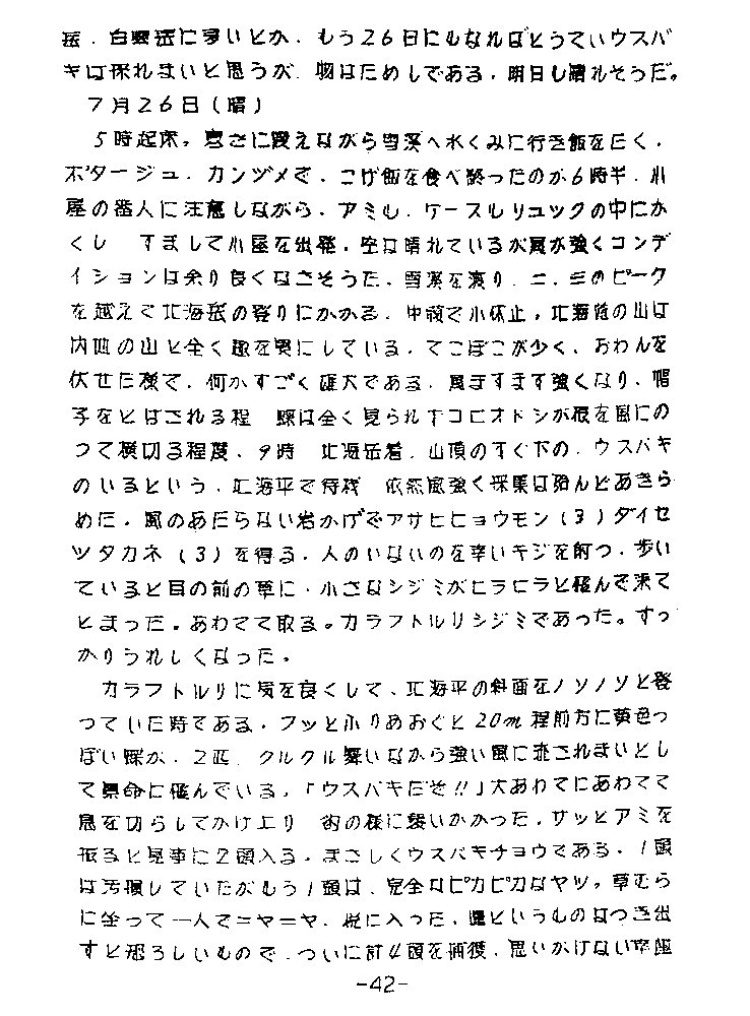 岳、白雲岳に多いとか、もう26日にもなればとうていウスバ
キは採れまいと思うが、物はためしである。明日も晴れそうだ。
7月26日(晴)
5時起床。寒さに震えながら雪渓へ水くみに行き飯を炊く。
ポタージュ、カンヅメで、こげ飯を食べ終ったのが6時半、小
屋の番人に注意しながら、アミも、ケースもリュックの中にか
くし すまして小屋を出発。空は晴れているが風が強くコンデ
イションは余り良くなさそうだ。雪渓を渡り、二、三のピーク
を越えて北海岳の登りにかかる。中腹で小休止。北海道の山は
内地の山と全く趣を異にしている。でこぼこが少く、おわんを
伏せた様で、何かすごく雄大である。風ますます強くなり、帽
子をとばされる程 蝶は全く見られずコヒオドシが根を風にの
って横切る程度。9時 北海岳着。山頂のすぐ下の、ウスバキ
のいるという、北海平で待機 依然風強く採集は殆んどあきら
めた。風のあたらない岩かげでアサヒヒョウモン(3)ダイセ
ツタカネ(3)を得る。人のいないのを幸いキジを射つ。歩い
ていると目の前の草に、小さなシジミがヒラヒラと飛んで来て
とまった。あわてて取る。カラフトルリシジミであった。すっ
かりうれしくなった。
カラフトルリに気を良くして、北海平の斜面をノソノソと登
っていた時である。フッとふりあおぐと20m程前方に黄色っ
ぽい蝶が、2匹 クルクル舞いながら強い風に流されまいとし
て懸命に飛んでいる。「ウスバキだぞ!!」大あわてにあわてて
息を切らしてかけ上り 術の様に襲いかかった。サッとアミを
振ると見事に2頭入る。まさしくウスバキチョウである。1頭
は汚損していたがもう1頭は、完全なピカピカなヤツ。草むら
に坐って一人でニヤーニヤ、悦に入った。運というものはつき出
すと恐ろしいもので、ついに計4頭を捕獲。思いがけない幸運
-42-